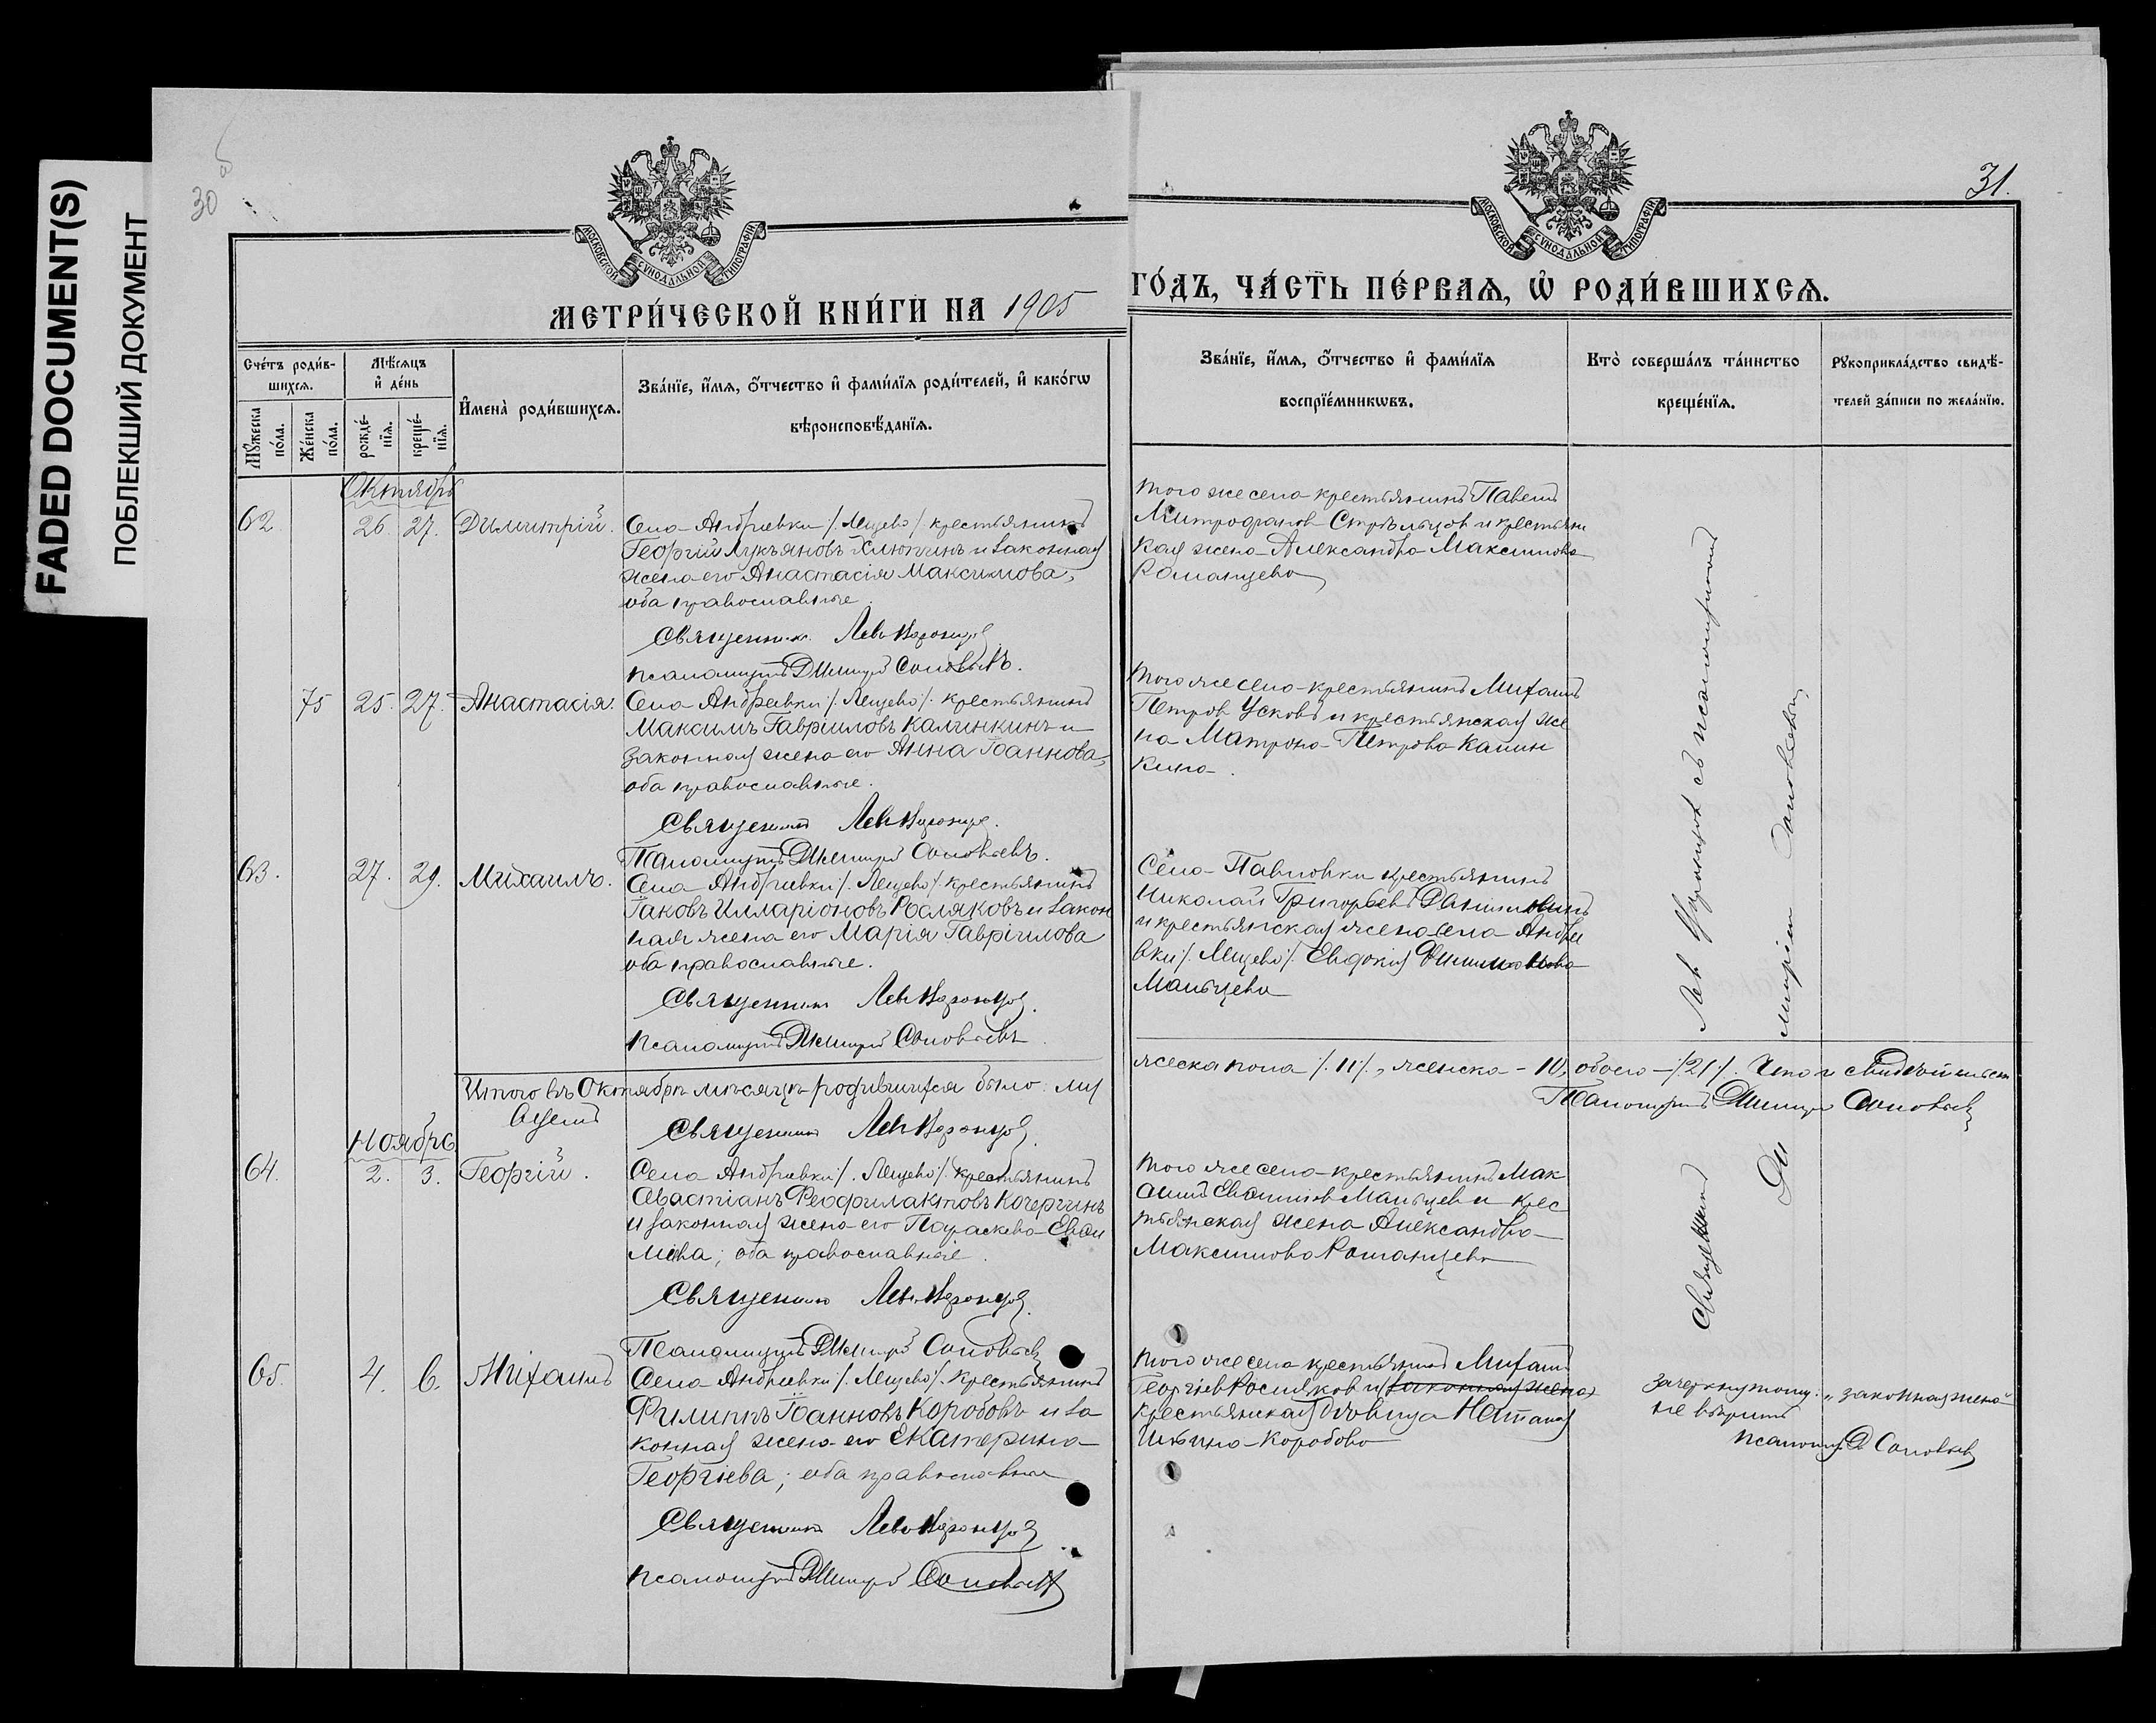 FADED DOCUMENT(S)
ПОБЛЕКШИЙ ДОКУМЕНТ
30 об
31.
МОСКОВСКОЙ СѴНОДАЛЬНОЙ ТИПОГРАФІИ
МОСКОВСКОЙ СѴНОДАЛЬНОЙ ТИПОГРАФІИ
МЕТРИ́ЧЕСКОЙ КНИ́ГИ НА 1905
ГО́ДЪ, ЧА́СТЬ ПЕ́РВАѦ, Ѡ҆ РОДИ́ВШИХСѦ.
Сче́тъ роди́в-
шихсѧ.
Мꙋ́жеска по́ла.
Же́нска по́ла.
Мѣ́сѧцъ
и҆ де́нь
рожде́-нїѧ.
креще́-нїѧ.
И҆мена̀ роди́вшихсѧ.
Зва́нїе, и҆́мѧ, ѻ҆́тчество и҆ фами́лїѧ роди́телей, и҆ како́гѡ
вѣроисповѣ́данїѧ.
Зва́нїе, и҆́мѧ, ѻ҆́тчество и҆ фами́лїѧ
воспрїе́мникѡвъ.
Кто̀ соверша́лъ та́инство
креще́нїѧ.
Рꙋкоприкла́дство свидѣ́-
телей за́писи по жела́нїю.
Октябрь
62. 26. 27. Димитрій.
Села Андреевки /. Лещево /. крестьянинъ
Георгій Лукьяновъ Клюпинъ и законная
жена его Анастасія Максимова,
оба православные.
Священник Левъ Воронцов
псаломщикъ Димитрій Соловьевъ.
того же села крестьянинъ Павелъ
Митрофанов Стрѣльцов и крестьянс
кая жена Александра Максимова
Романцева
75 25. 27. Анастасія.
Села Андреевки /. Лещево /. крестьянинъ
Максимъ Гавріиловъ Калинкинъ и
законная жена его Анна Іоаннова,
оба православные.
Священникъ Левъ Воронцов.
Псаломщикъ Димитрій Соловьевъ.
того же села крестьянинъ Михаилъ
Петров Усковъ и крестьянская же
на Матрона Петрова Калин
кина.
63. 27. 29. Михаилъ.
Села Андреевки /. Лещево /. крестьянинъ
Іаковъ Илларіоновъ Росляковъ и закон
ная жена его Марія Гавріилова
оба православные.
Священникъ Левъ Воронцов.
псаломщикъ Димитрій Соловьевъ.
Села Павловки крестьянинъ
Николай Григорьевъ
и крестьянская жена села Андрее
вки /. Лещево /. Евдокія
Мальцева
Итого въ Октябрѣ мѣсяцѣ родившихся было: му
жеска пола /. 11 /., женска – 10, обоего – /. 21 /. Что и свидѣтельст
вуемъ Священникъ Левъ Воронцов.
Псаломщикъ Димитрій Соловьевъ
Ноябрь
64. 2. 3. Георгій.
Села Андреевки /. Лещево /. крестьянинъ
Севастіанъ Феофилактовъ Кочергинъ
и законная жена его Параскева Евѳи
міева; оба православные.
Священникъ Левъ Воронцов.
Псаломщикъ Димитрій Соловьевъ
того же села крестьянинъ Мак
симъ Мальцев и крес
тьянская жена Александра
Максимова Романцева
65. 4. 6. Михаилъ
Села Андреевки /. Лещево /. крестьянинъ
Филиппъ Іоанновъ Коробовъ и за
конная жена его Екатерина
Георгіева; оба православные
Священникъ Левъ Воронцов
псаломщикъ Димитрій Соловьевъ
того же села крестьянинъ Михаилъ
Георгіев Росляков и законная жена
крестьянская вдовица Наталія
Ильина Коробова
зачеркнутому: „законная жена"
не вѣрить
псаломщ. Д. Соловьев
Священникъ Лев Воронцов съ псаломщикомъ
Димитріем Соловьевым